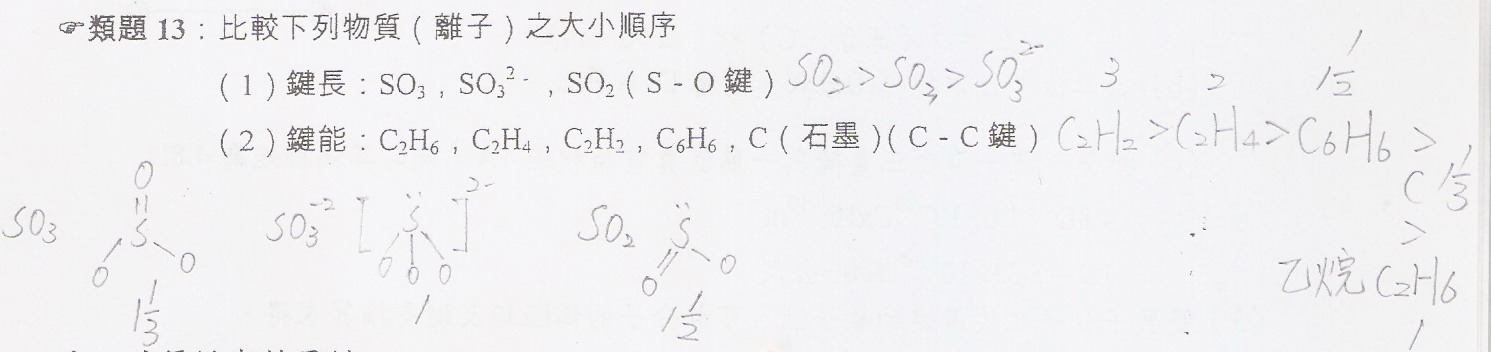 ☞類題 13：比較下列物質（離子）之大小順序
（1）鍵長：SO₃，SO₃²⁻，SO₂（S - O 鍵） SO₂ > SO₃ > SO₃²⁻ 3 2 1½
（2）鍵能：C₂H₆，C₂H₄，C₂H₂，C₆H₆，C（石墨）（C - C 鍵） C₂H₂ > C₂H₄ > C₆H₆ >
C 1⅓
>
乙烷 C₂H₆
1
SO₃ O S O O 1⅓
SO₃⁻² [S O O O]²⁻ 1
SO₂ S O O 1½